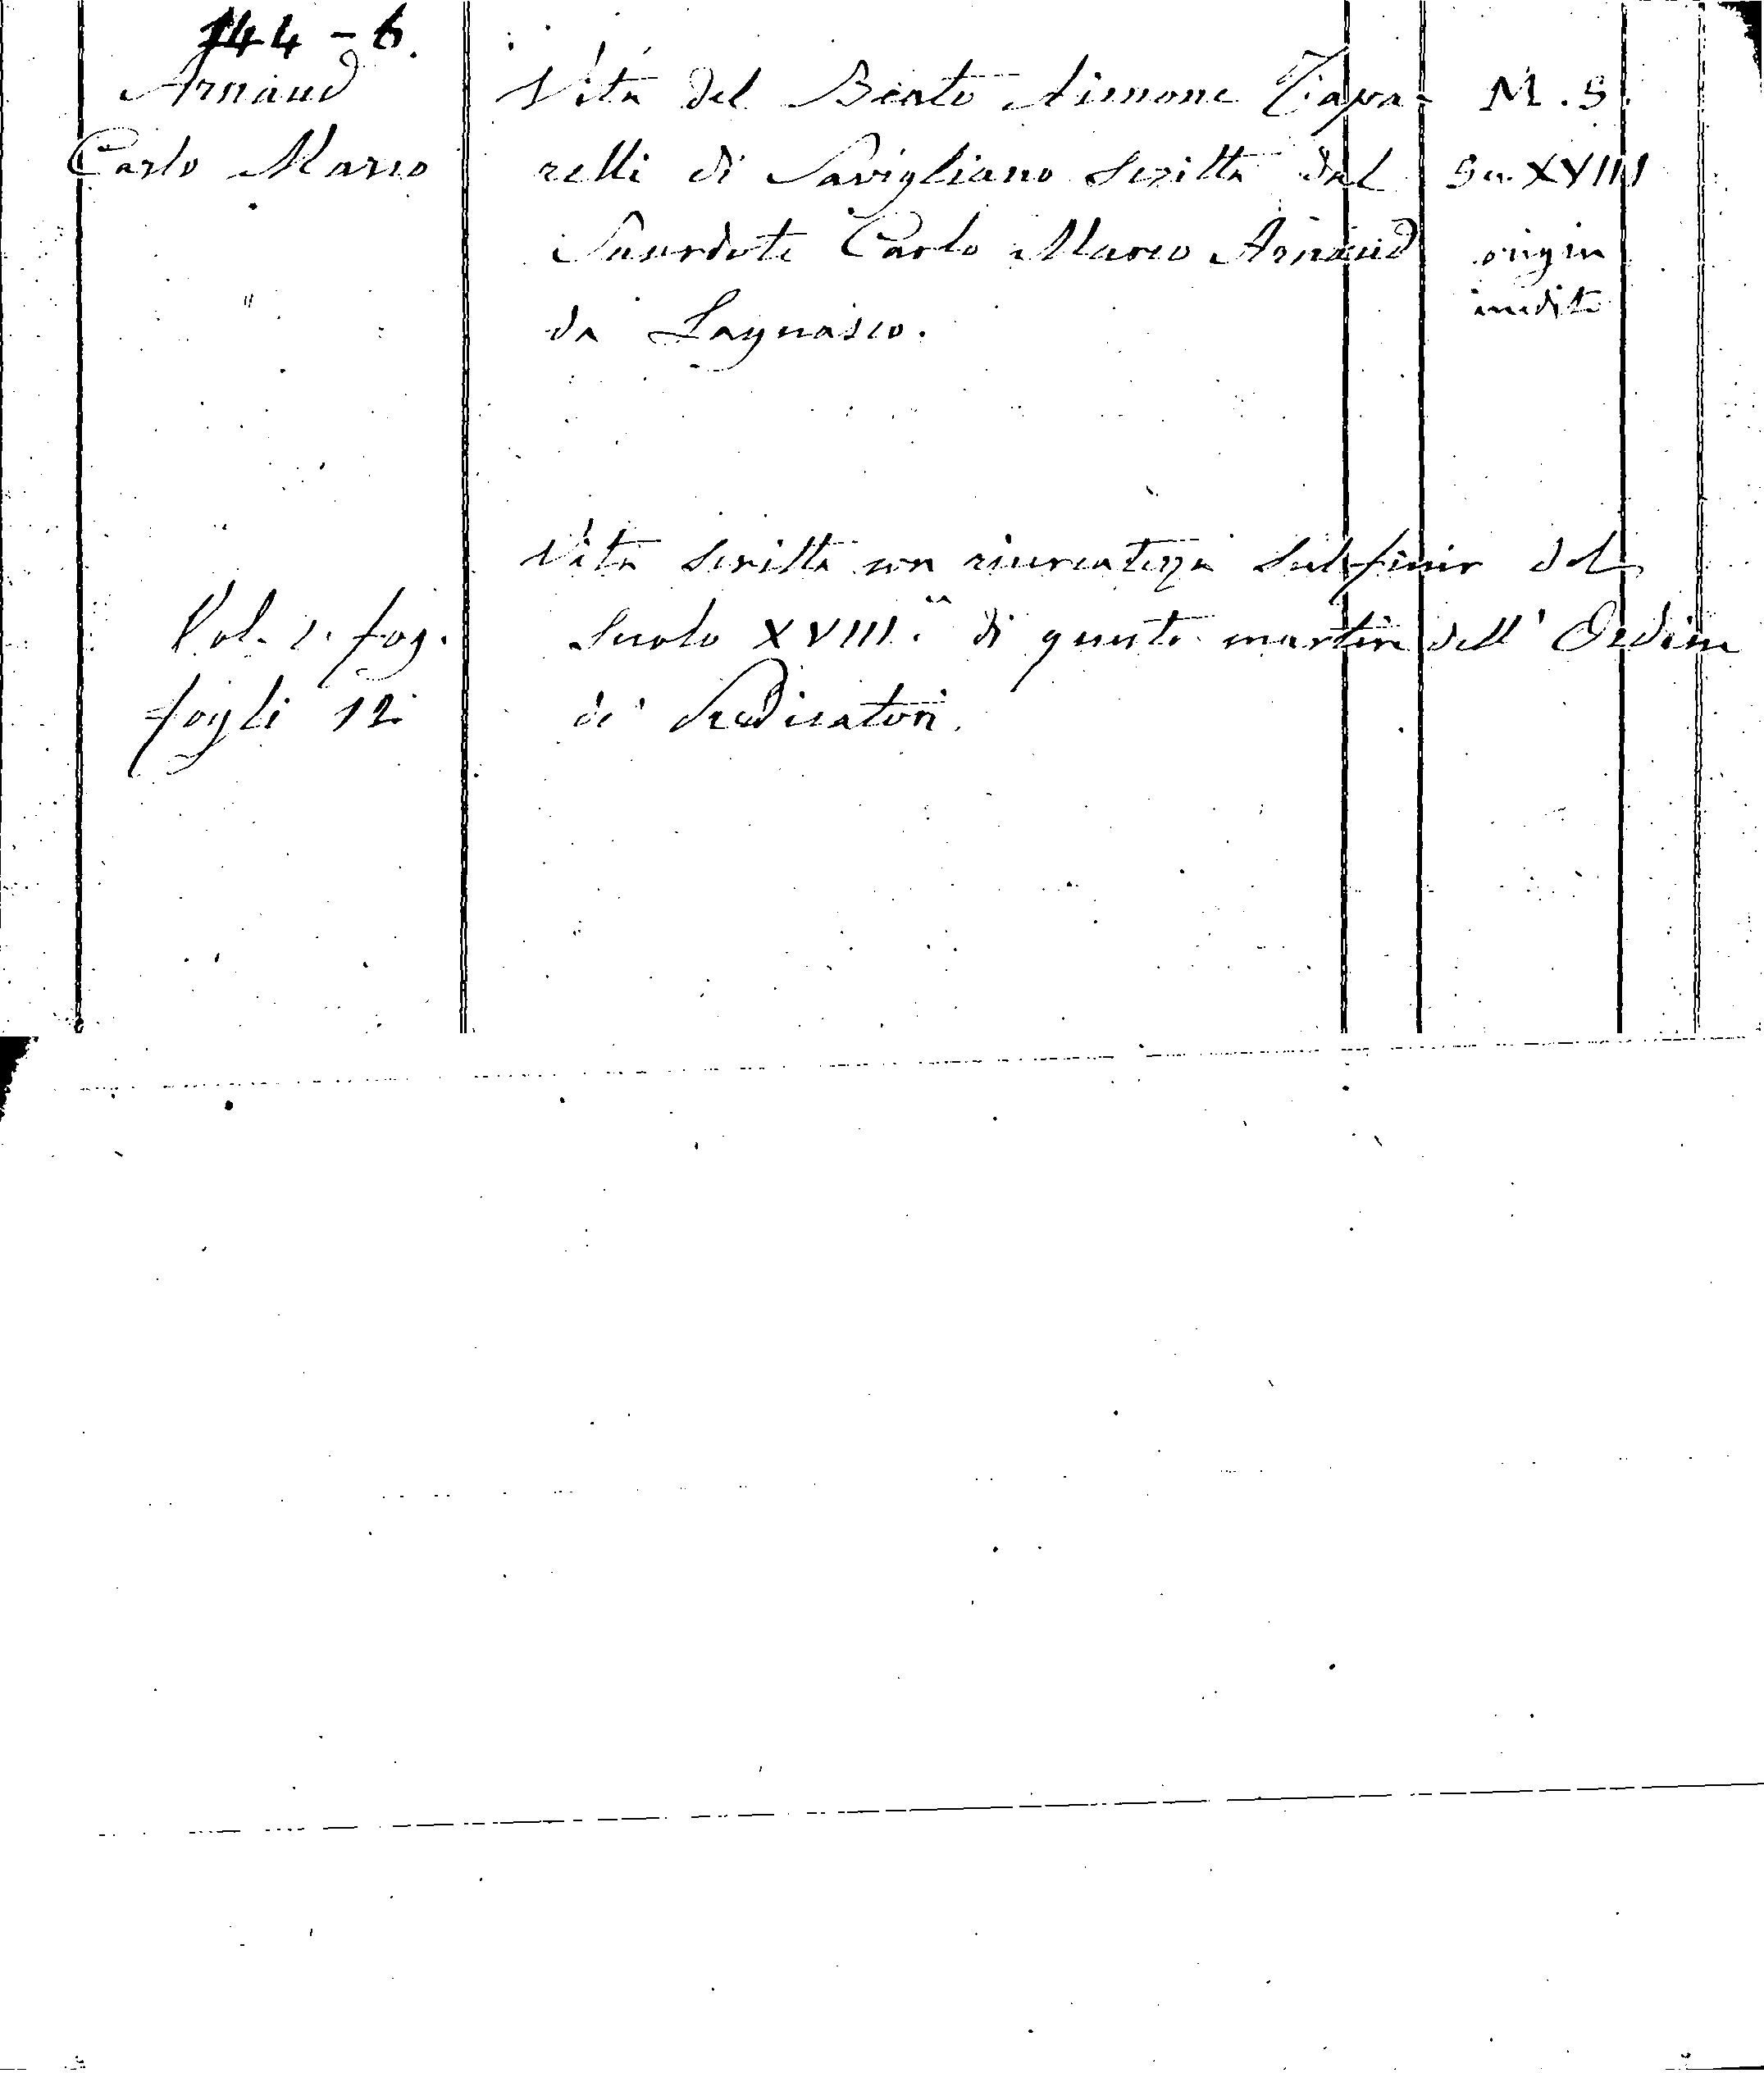 144 - 6.
Arnaud
Carlo Marco
Vita del Beato Aimone Tapa-
relli di Savigliano scritta dal
Sacerdote Carlo Marco Arnaud
da Lagnasco.
M. S.
Sec. XVIII
origin
inedito
Vita scritta con ricercatezza sul finir del
Secolo XVIII. di questo martire dell' Ordine
de' Predicatori.
Vol. 1. fog.
fogli 12